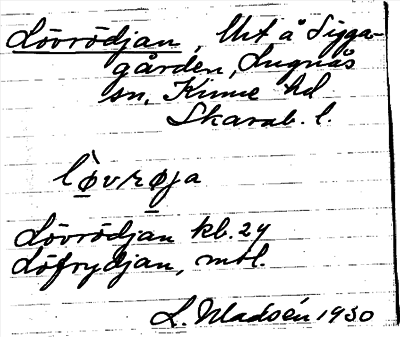 Lövrödjan, Urt å Sigga-
gården, Lugnås
sn, Kinne hd
Skarab. l.
lø̀vrøja
Lövrödjan kb. 24
Löfrydjan, mtl.
L. Wladsén 1930